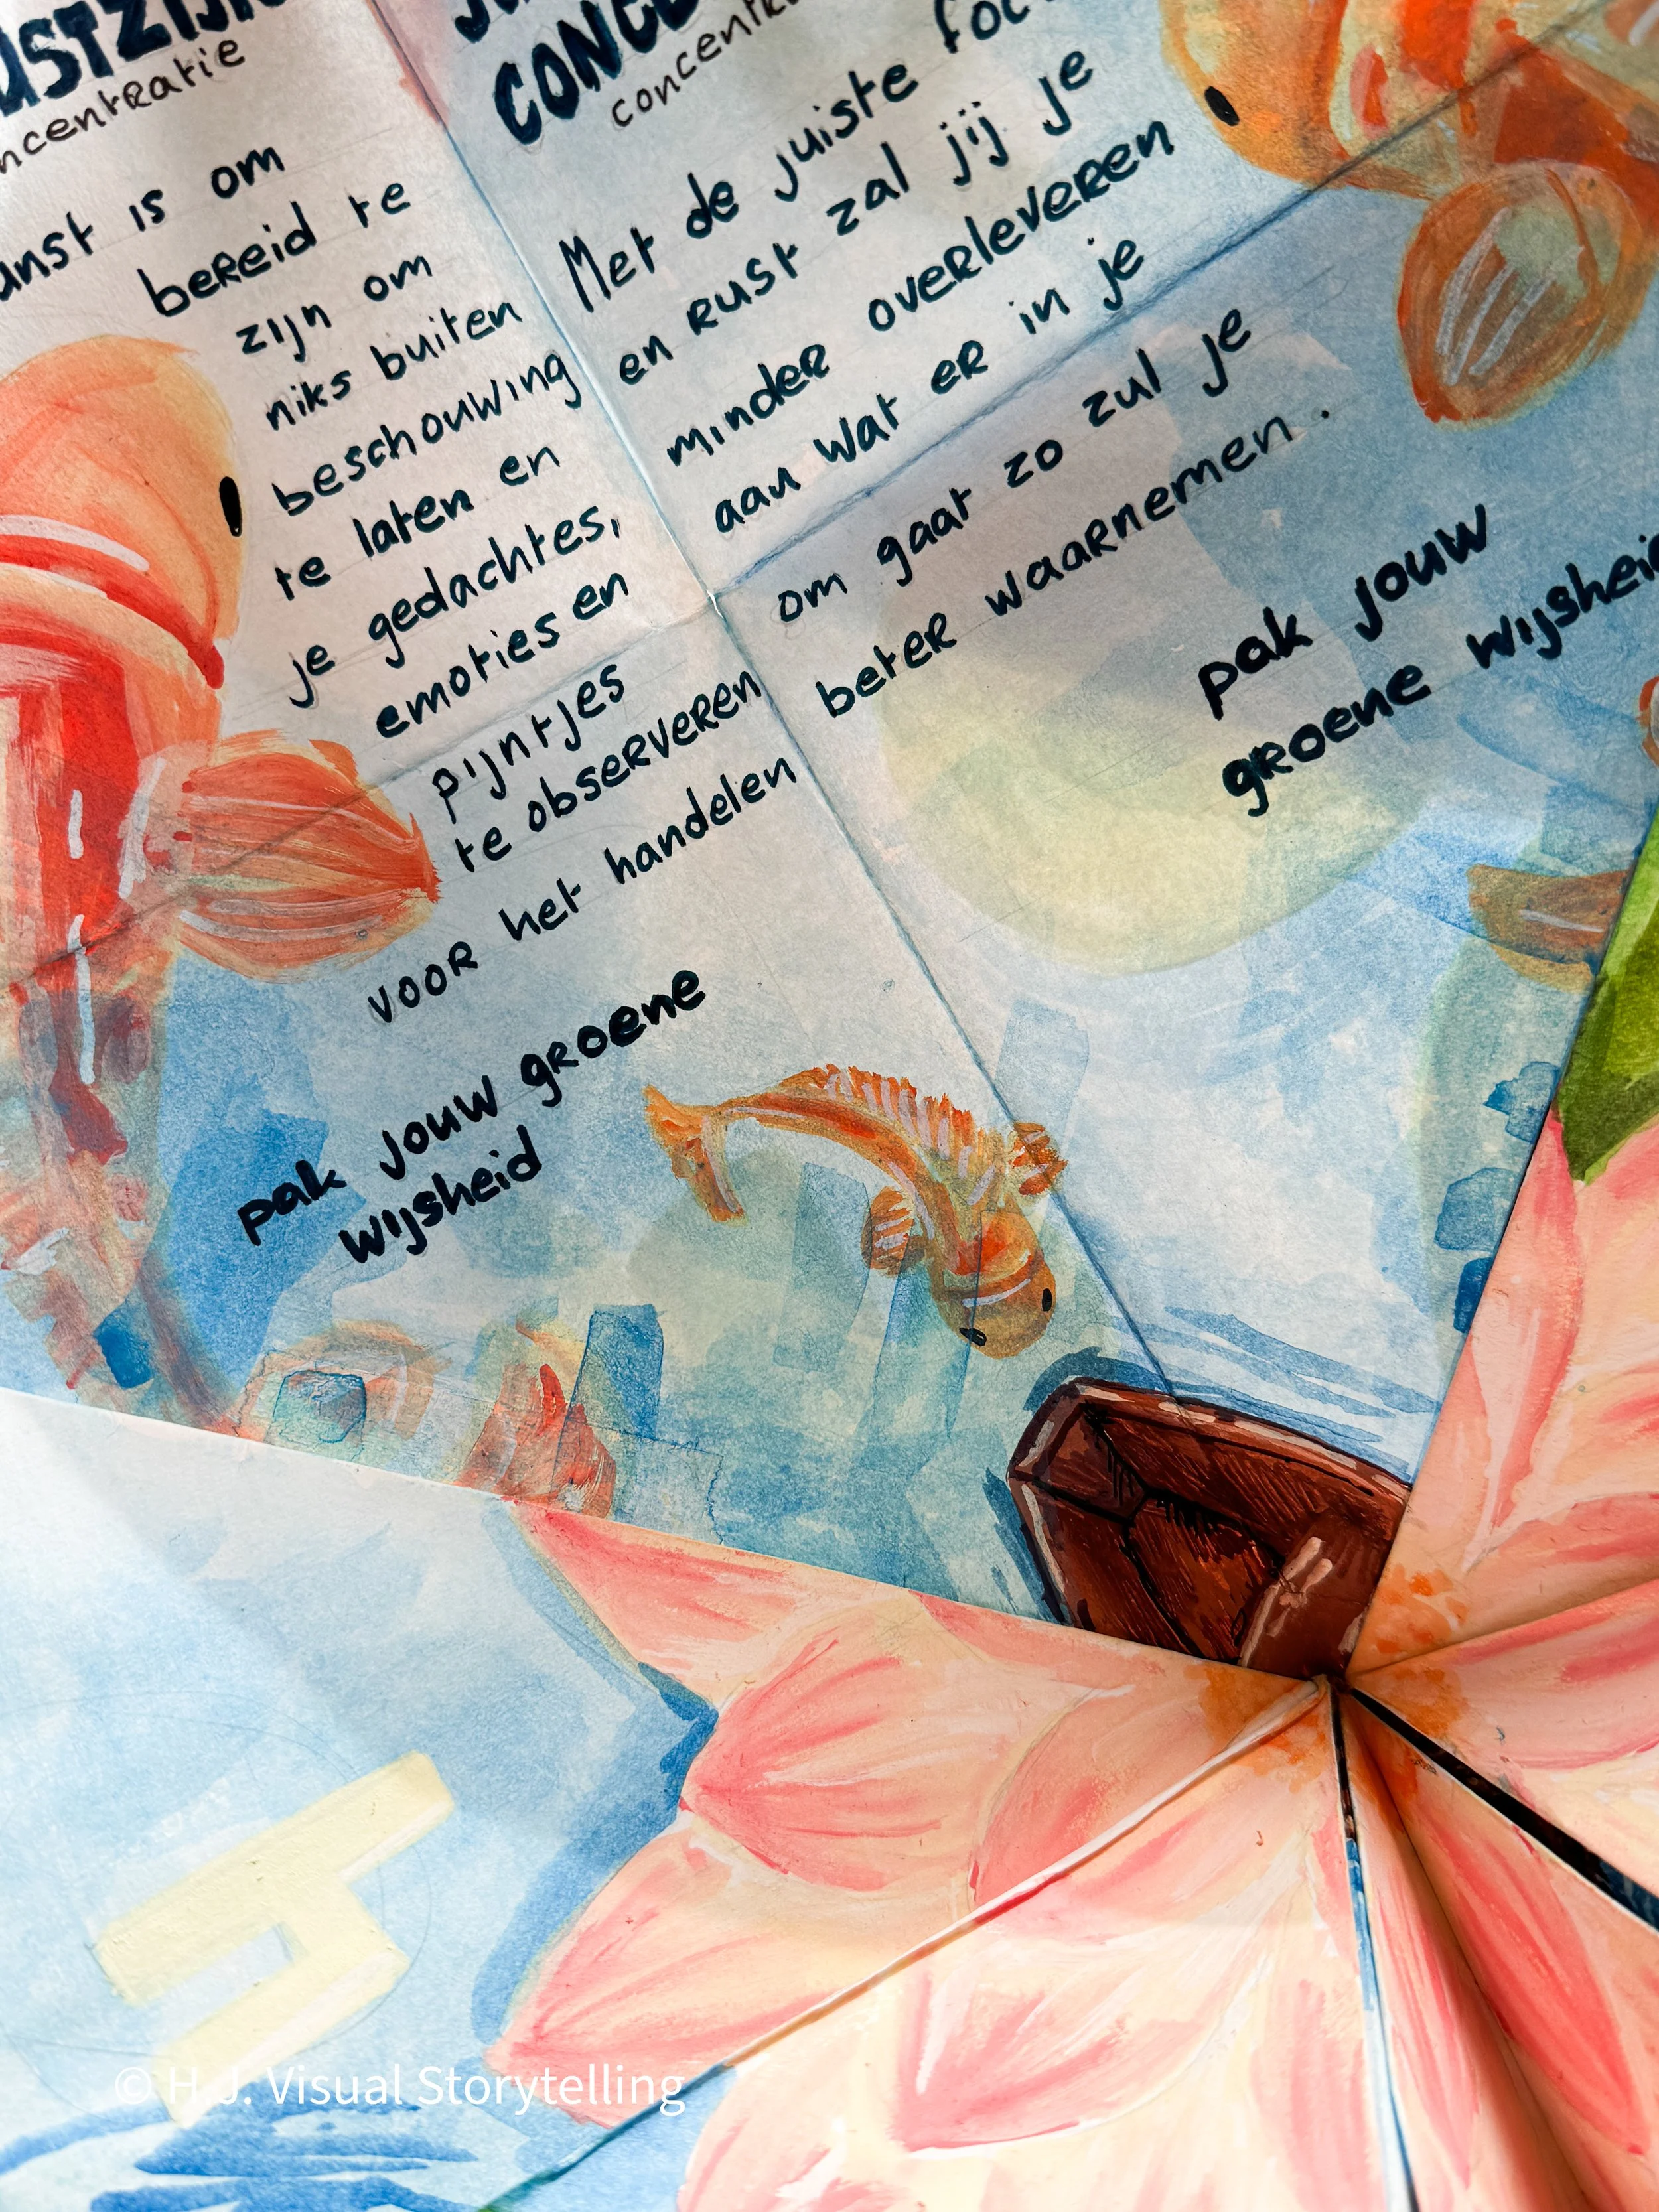 concentratie
is om
bereid te
zijn om
niks buiten
beschouwing
te laten en
je gedachtes,
emoties en
pijntjes
te observeren
voor het handelen
pak jouw groene
wijsheid
Met de juiste
en rust zal jij je
minder overleveren
aan wat er in je
om gaat zo zul je
beter waarnemen.
pak jouw
groene wijsheid
© H.J. Visual Storytelling